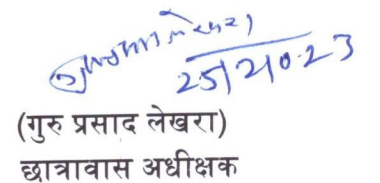 25/2/0.23
(गुरु प्रसाद लेखरा)
छात्रावास अधीक्षक